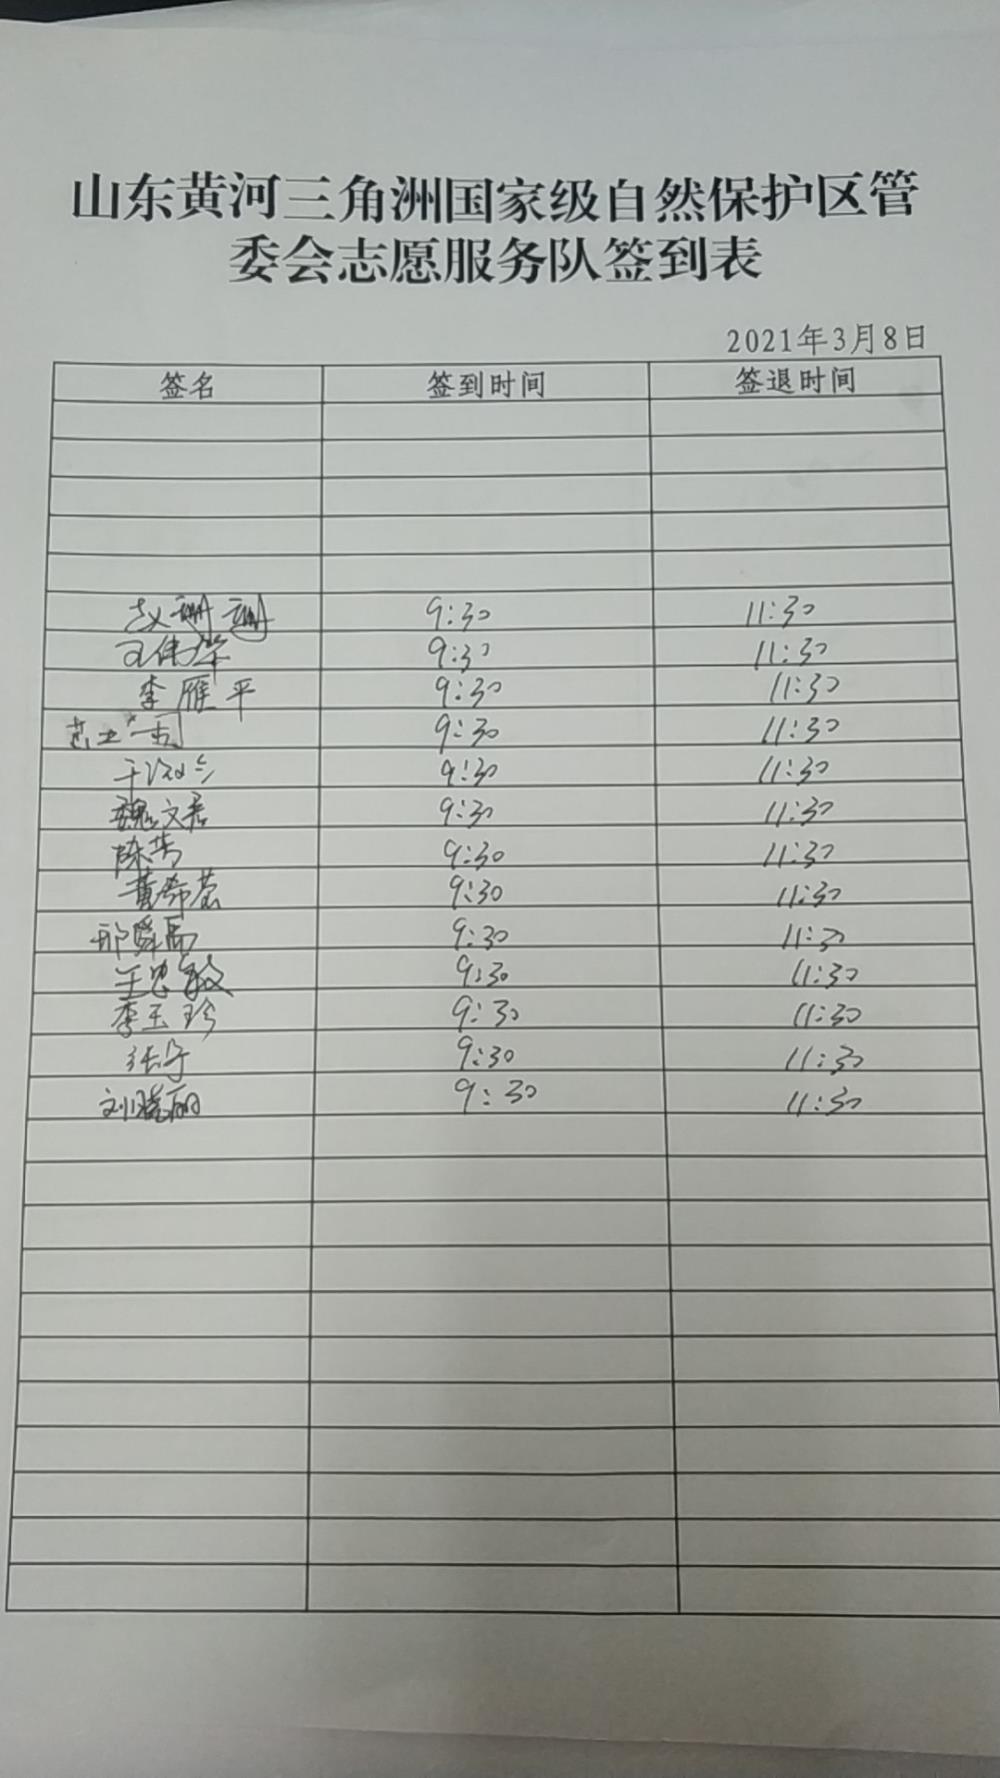 山东黄河三角洲国家级自然保护区管
委会志愿服务队签到表
2021年3月8日
签名 签到时间 签退时间
赵珊珊 9:30 11:30
王伟华 9:30 11:30
李雁平 9:30 11:30
9:30 11:30
9:30 11:30
魏文君 9:30 11:30
陈芳 9:30 11:30
黄希荟 9:30 11:30
邢舜禹 9:30 11:30
王忠敏 9:30 11:30
李玉珍 9:30 11:30
张宁 9:30 11:30
刘晓丽 9:30 11:30